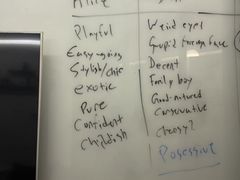 Playful
Easygoing
Stylish/chic
exotic
Pure
Confident
childish
Weird eyes
face
Decent
Family boy
Good-natured
Conservative
cheesy?
Posessive